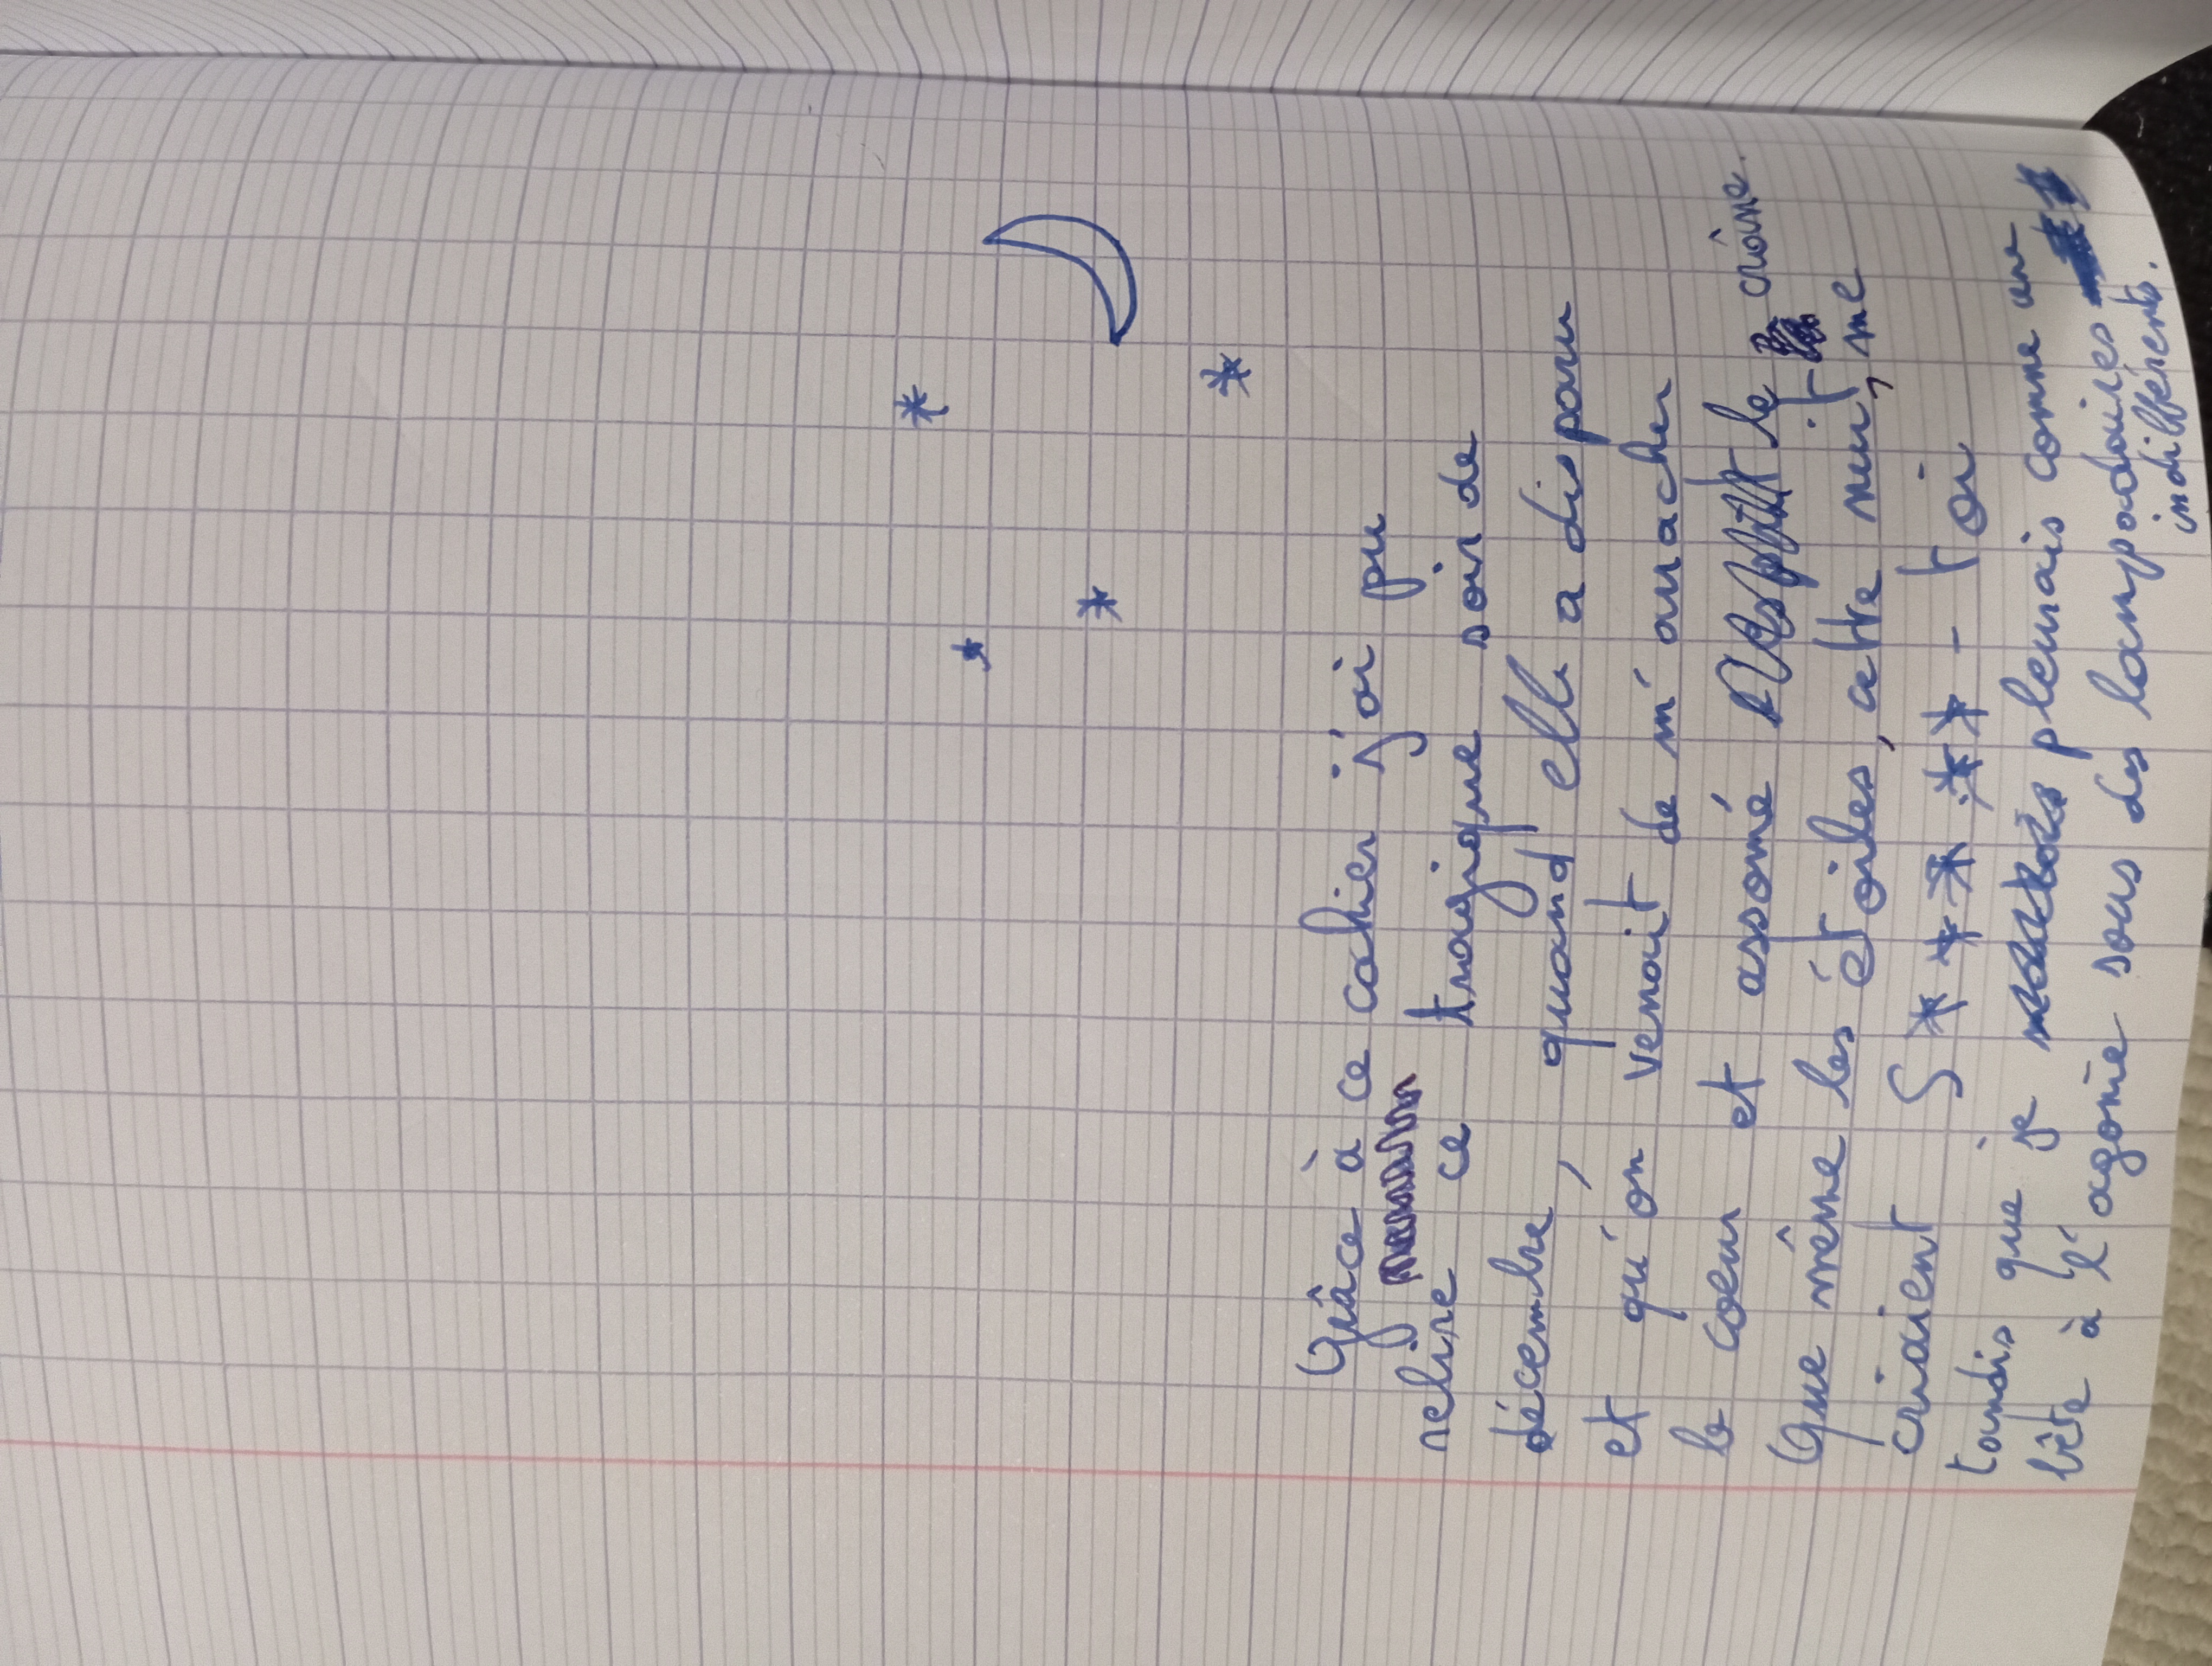 Grâce à ce cahier j'ai pu
relire ce tragique soir de
décembre, quand elle a disparu
et qu'on venait de m'arracher
le coeur et assomé le crâne.
Que même les étoiles, cette nuit, me
criaient S*****-toi
tandis que je pleurais comme une
bête à l'agonie sous des lampadaires
indifférents.